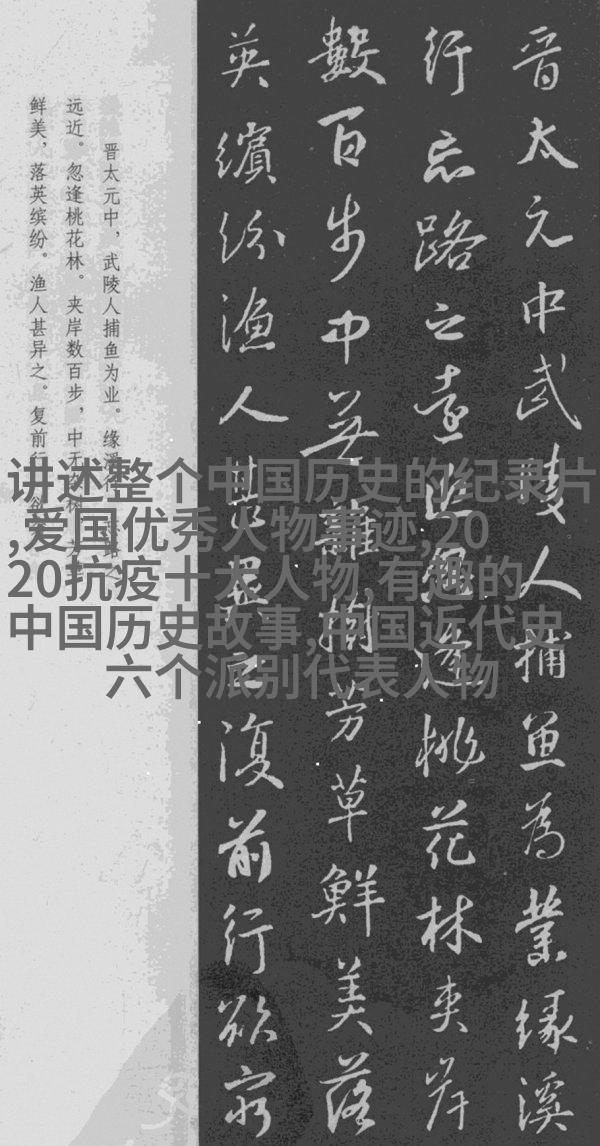 晋太元中武陵人捕魚為業緣溪
行忘路之遠近忽逢桃花林夹岸
數百步中無雜樹芳草鮮美落
英繽紛漁人甚異之復前行欲窮
晋太元中，武陵人捕鱼为业。缘溪行，忘路之
远近。忽逢桃花林。夹岸数百步，中无杂树，芳草
鲜美，落英缤纷。渔人甚异之。复前行，欲
讲述整个中国历史的纪录片
,爱国优秀人物事迹,20
20抗疫十大人物,有趣的
中国历史故事,中国近代史
六个派别代表人物